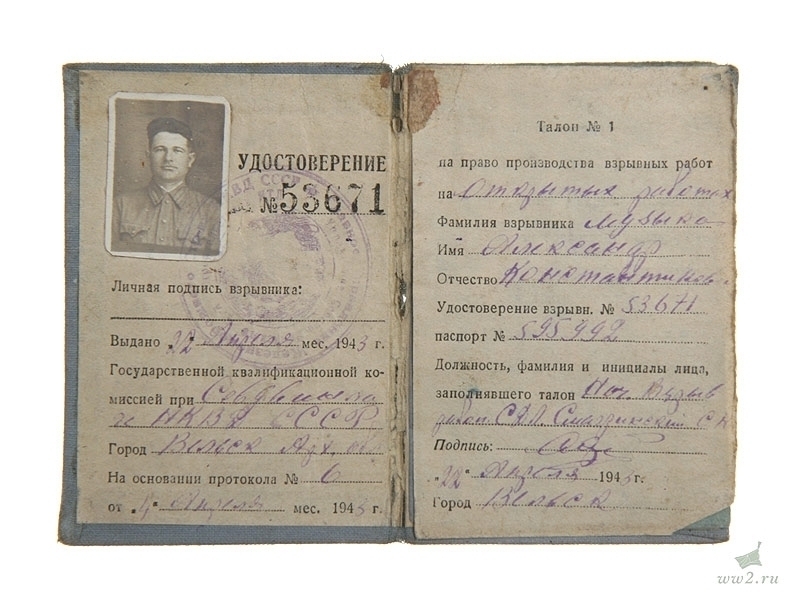 УДОСТОВЕРЕНИЕ
№ 53671
Личная подпись взрывника:
Выдано 22 Апреля мес. 1943 г.
Государственной квалификационной ко-
миссией при
и НКВД СССР
Город Вельск Арх. обл
На основании протокола № 6
от 4" Апреля мес. 1943 г.
Талон № 1
на право производства взрывных работ
на открытых работах
Фамилия взрывника Музыка
Имя Александр
Отчество Константинов
Удостоверение взрывн. № 53671
паспорт № 595992
Должность, фамилия и инициалы лица,
заполнявшего талон Нач. Взрыв
Подпись:
"22" Апреля 1943 г.
Город Вельск
ww2.ru